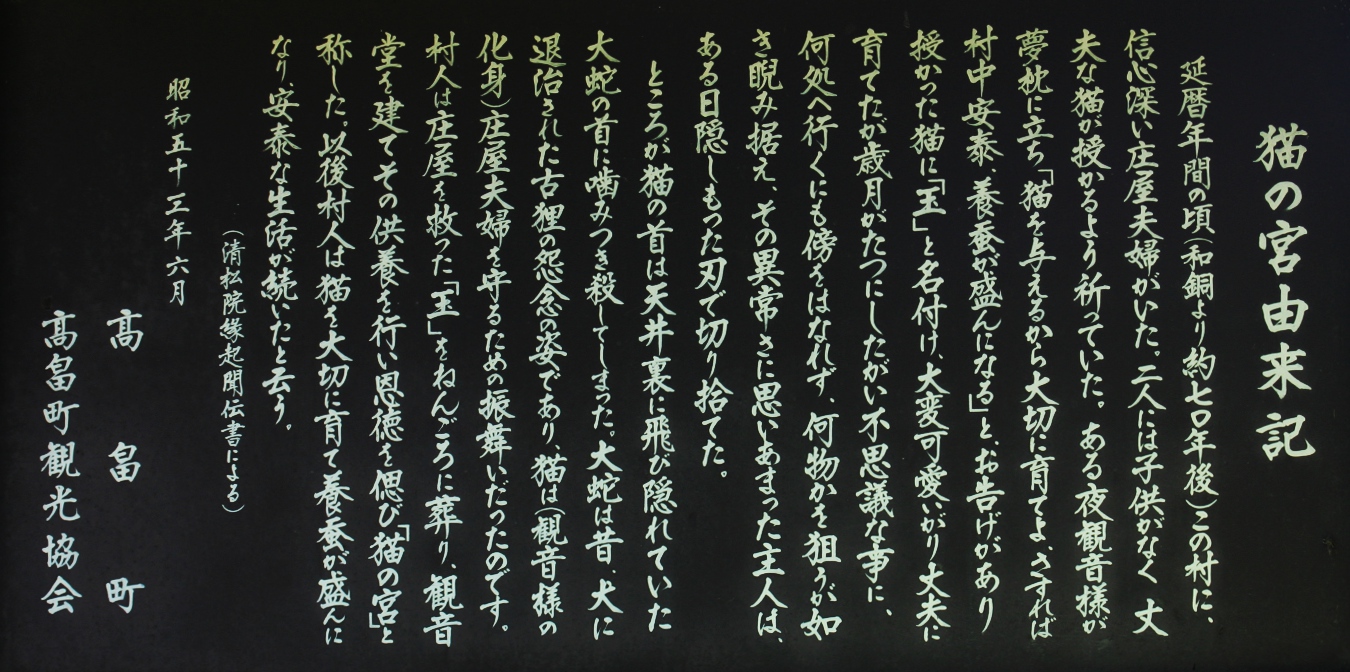 猫の宮由来記
延暦年間の頃(和銅より約七〇年後)この村に、
信心深い庄屋夫婦がいた。二人には子供がなく丈
夫な猫が授かるよう祈っていた。ある夜観音様が
夢枕に立ち「猫を与えるから大切に育てよ、さすれば
村中安泰、養蚕が盛んになる」と、お告げがあり
授かった猫に「玉」と名付け、大変可愛いがり丈夫に
育てたが歳月がたつにしたがい不思議な事に、
何処へ行くにも傍をはなれず、何物かを狙うが如
き睨み据え、その異常さに思いあまった主人は、
ある日隠しもった刃で切り捨てた。
ところが猫の首は天井裏に飛び隠れていた
大蛇の首に噛みつき殺してしまった。大蛇は昔、犬に
退治された古狸の怨念の姿であり、猫は(観音様の
化身)庄屋夫婦を守るための振舞いだったのです。
村人は庄屋を救った「玉」をねんごろに葬り、観音
堂を建てその供養を行い恩徳を偲び「猫の宮」と
称した。以後村人は猫を大切に育て養蚕が盛んに
なり、安泰な生活が続いたと云う。
(清松院縁起聞伝書による)
昭和五十三年六月
高畠町
高畠町観光協会